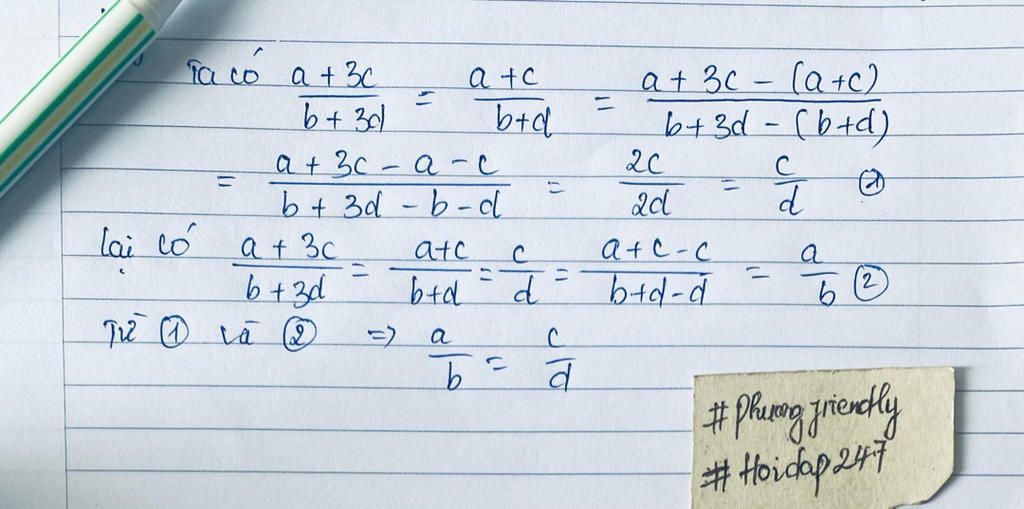 Ta có (a + 3c)/(b + 3d) = (a + c)/(b + d) = (a + 3c - (a + c))/(b + 3d - (b + d))
= (a + 3c - a - c)/(b + 3d - b - d) = 2c/2d = c/d ①
lại có (a + 3c)/(b + 3d) = (a + c)/(b + d) = c/d = (a + c - c)/(b + d - d) = a/b ②
Từ ① và ② => a/b = c/d
# Phuongfriendly
# Hoidap247